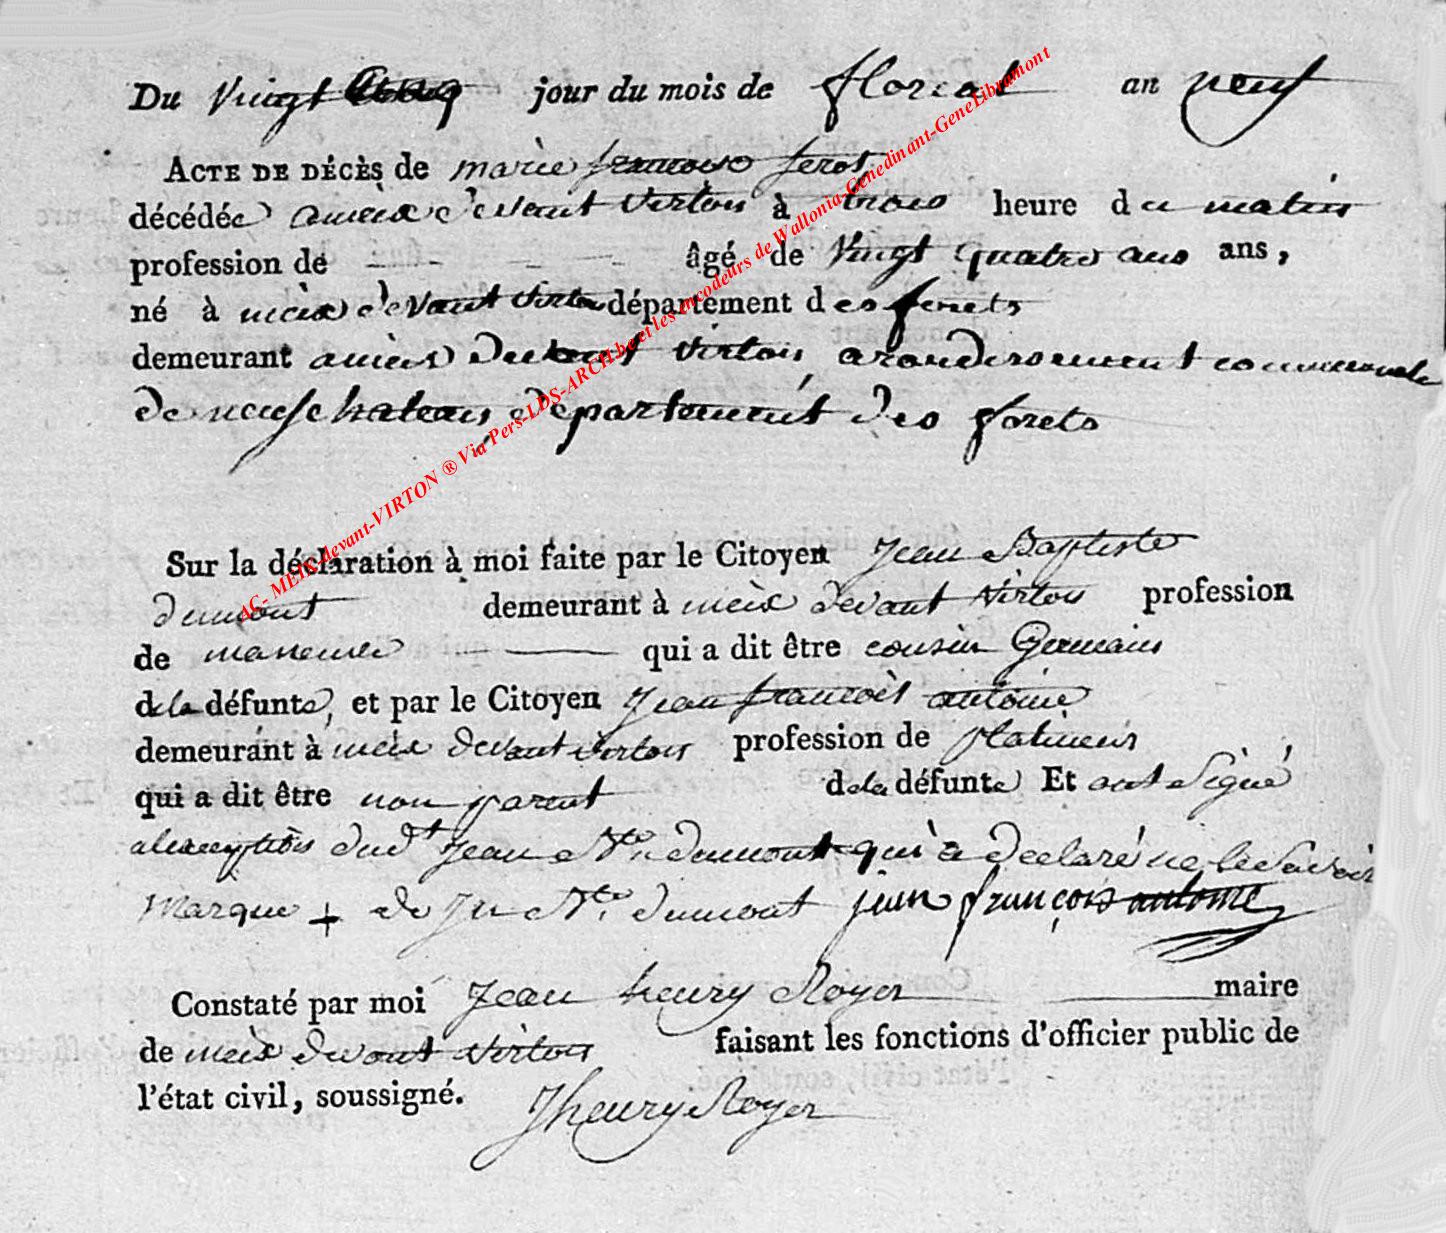 Du Vingt Cinq jour du mois de floreal an neuf
ACTE DE DÉCÈS de marie francoise ferot
décédée a meix devant Virton à trois heure du matin
profession de âgé de Vingt quatre ans ans,
né à meix devant Virton département des forets
demeurant a meix devant Virton arondissement communale
de neufchateau, departement des forets
Sur la déclaration à moi faite par le Citoyen Jean Baptiste
dumont demeurant à meix devant Virton profession
de qui a dit être cousin Germain
de la défunte, et par le Citoyen Jean francois antoine
demeurant à meix devant virton profession de platineur
qui a dit être non parent de la défunte Et ont Signé
alexeption dudt Jean Bte dumont qui a declaré ne le Savoir
Marque + de Jn Bte dumont jean françois antoine
Constaté par moi Jean henry Royer maire
de meix devant virton faisant les fonctions d'officier public de
l'état civil, soussigné. Jhenry Royer
AC- MEIX-devant-VIRTON ® Via Pers-LDS-ARCH.be et les encodeurs de Wallonia-Genedinant-GeneLibramont